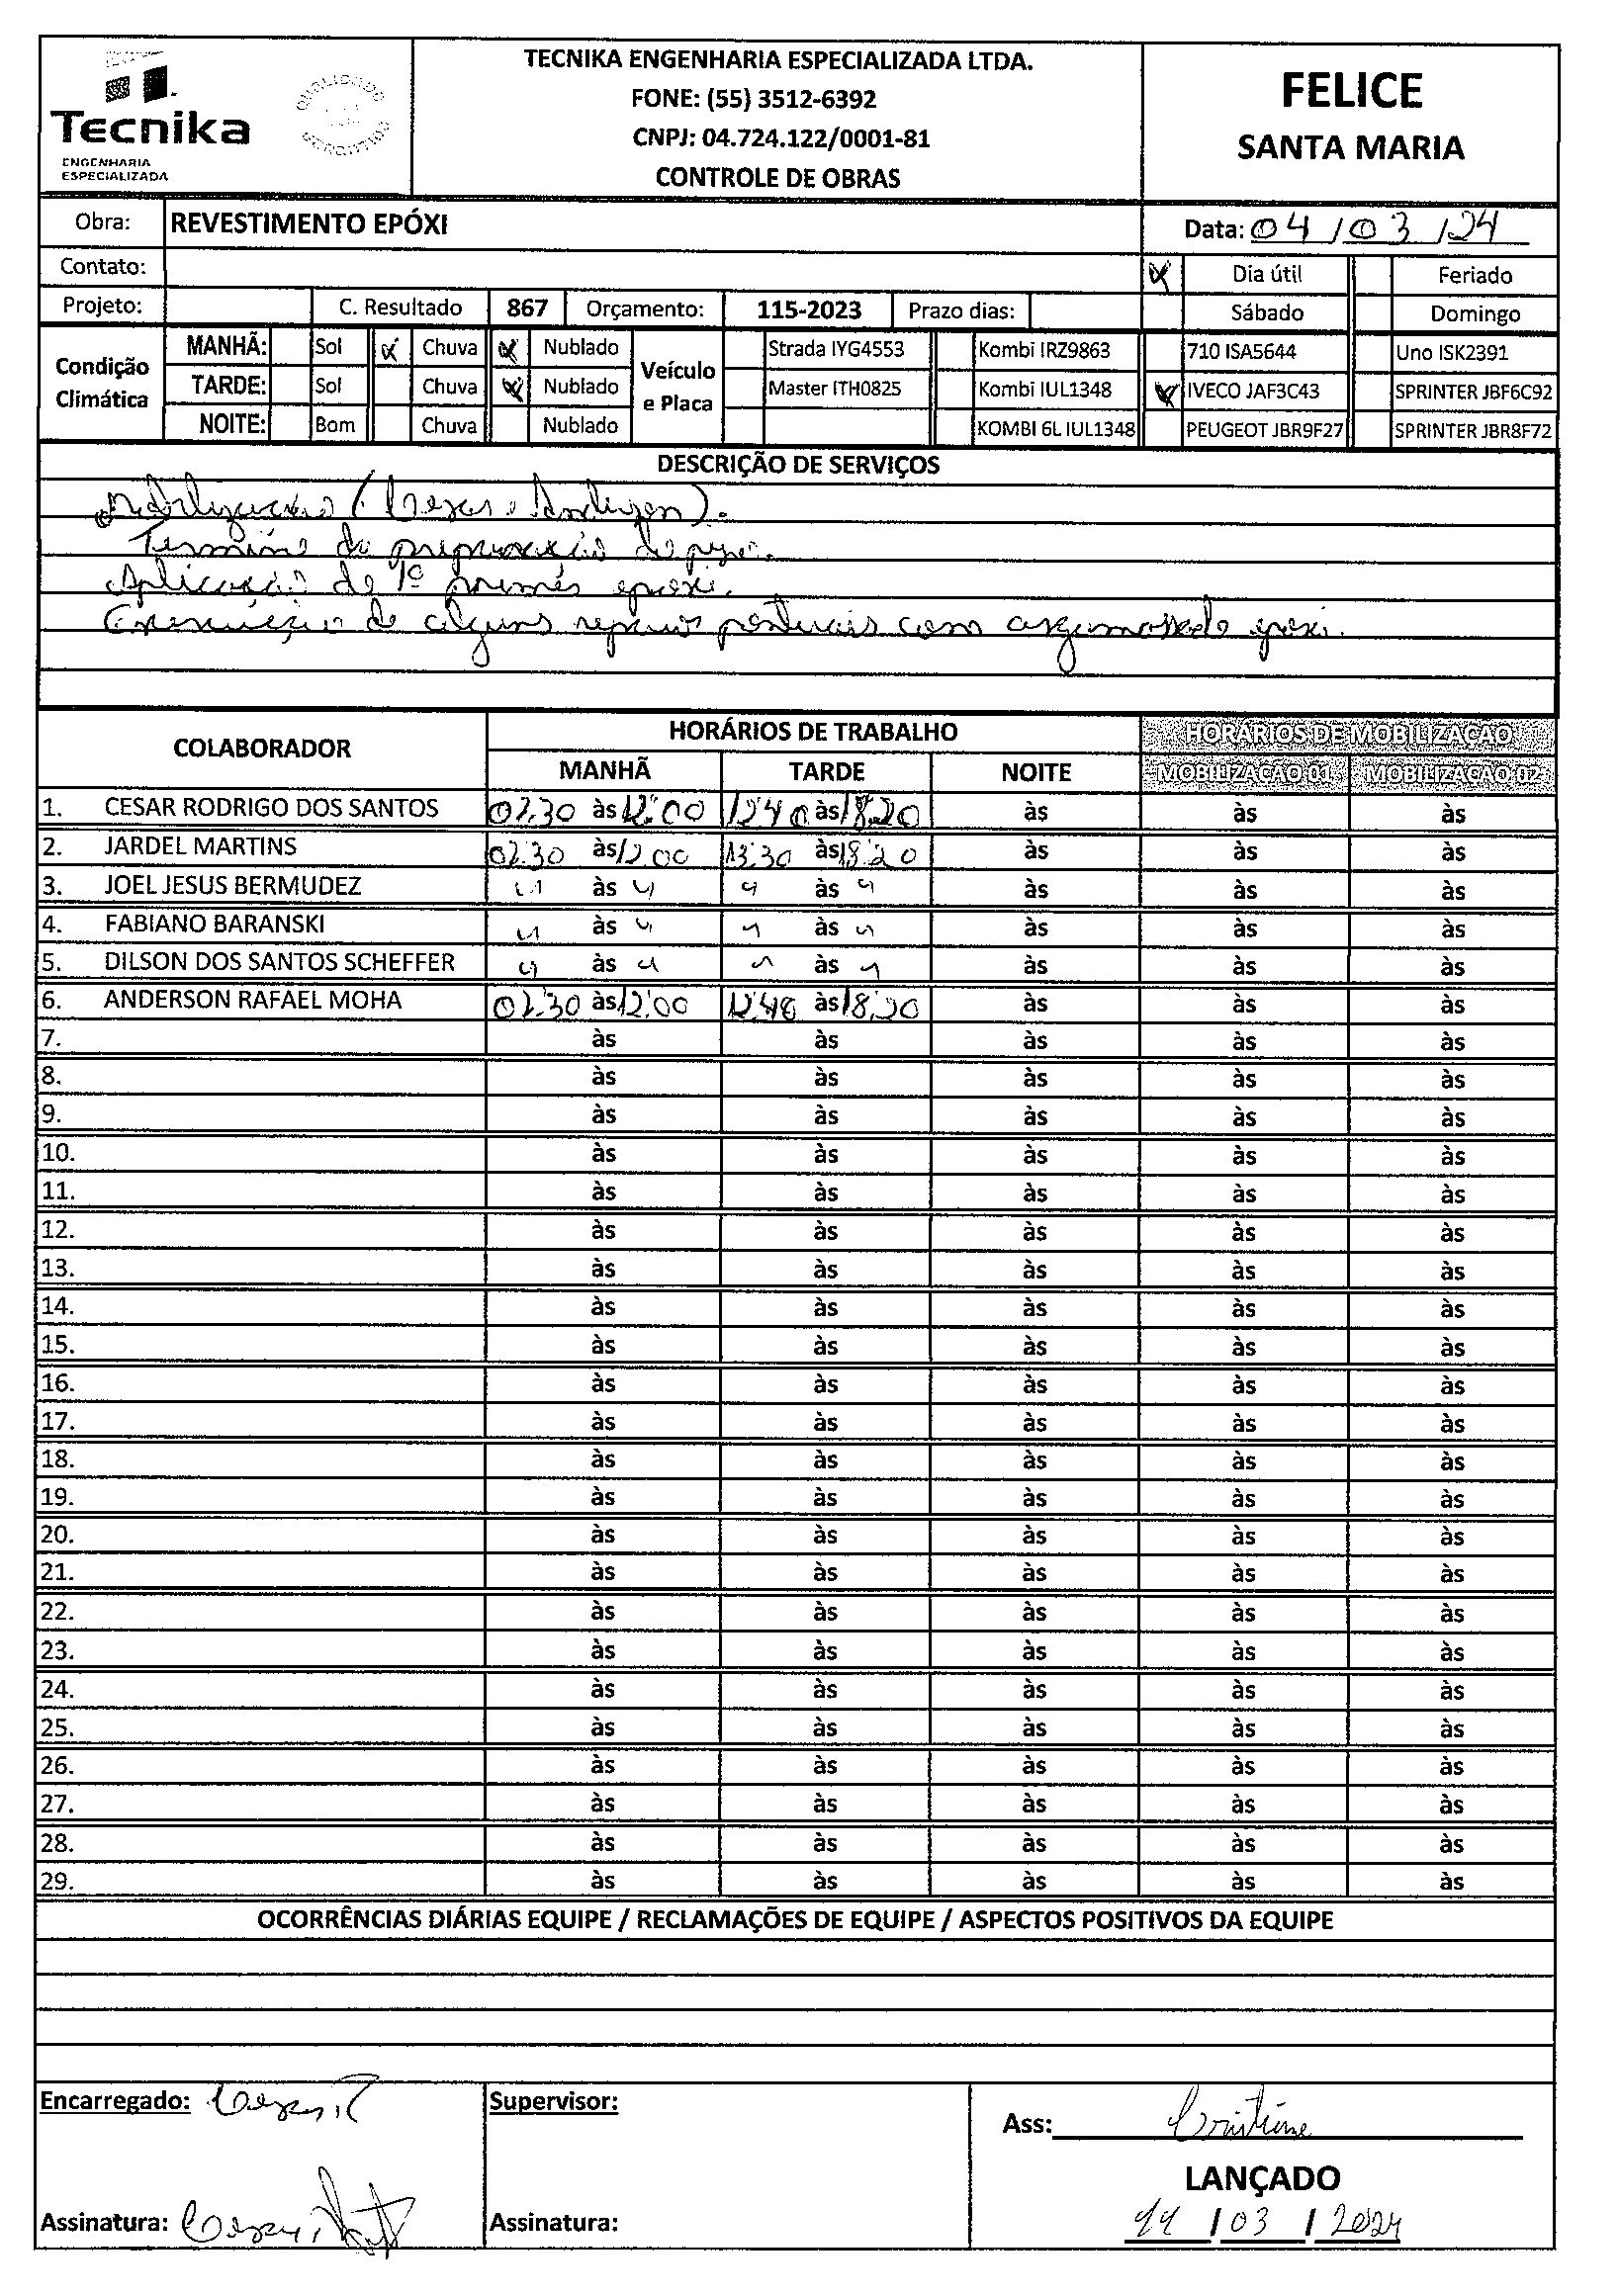 Tecnika
ENGENHARIA
ESPECIALIZADA
TECNIKA ENGENHARIA ESPECIALIZADA LTDA.
FONE: (55) 3512-6392
CNPJ: 04.724.122/0001-81
CONTROLE DE OBRAS
FELICE
SANTA MARIA
Obra: REVESTIMENTO EPÓXI
Data: 04/03/24
Contato:
Dia útil Feriado
Projeto: C. Resultado 867 Orçamento: 115-2023 Prazo dias:
Sábado Domingo
Condição Climática
MANHÃ: Sol Chuva Nublado
TARDE: Sol Chuva Nublado
NOITE: Bom Chuva Nublado
Veículo e Placa
Strada IYG4553 Kombi IRZ9863 710 ISA5644 Uno ISK2391
Master ITH0825 Kombi IUL1348 IVECO JAF3C43 SPRINTER JBF6C92
KOMBI 6L IUL1348 PEUGEOT JBR9F27 SPRINTER JBR8F72
DESCRIÇÃO DE SERVIÇOS
Mobilização (Cezar e Anderson).
Termino da preparação do piso.
Aplicação de 1º primer epoxi.
Execução de alguns reparos pontuais com argamassa de epoxi.
COLABORADOR HORÁRIOS DE TRABALHO HORÁRIOS DE MOBILIZAÇÃO
MANHÃ TARDE NOITE MOBILIZAÇÃO 01 MOBILIZAÇÃO 02
1. CESAR RODRIGO DOS SANTOS 07:30 às 12:00 12:40 às 18:20 às às às
2. JARDEL MARTINS 07:30 às 12:00 13:30 às 18:20 às às às
3. JOEL JESUS BERMUDEZ " às " " às " às às às
4. FABIANO BARANSKI " às " " às " às às às
5. DILSON DOS SANTOS SCHEFFER " às " " às " às às às
6. ANDERSON RAFAEL MOHA 07:30 às 12:00 12:40 às 18:20 às às às
7. às às às às às
8. às às às às às
9. às às às às às
10. às às às às às
11. às às às às às
12. às às às às às
13. às às às às às
14. às às às às às
15. às às às às às
16. às às às às às
17. às às às às às
18. às às às às às
19. às às às às às
20. às às às às às
21. às às às às às
22. às às às às às
23. às às às às às
24. às às às às às
25. às às às às às
26. às às às às às
27. às às às às às
28. às às às às às
29. às às às às às
OCORRÊNCIAS DIÁRIAS EQUIPE / RECLAMAÇÕES DE EQUIPE / ASPECTOS POSITIVOS DA EQUIPE
Encarregado:
Supervisor:
Ass: Cristiane
LANÇADO
Assinatura:
Assinatura:
11 / 03 / 2024